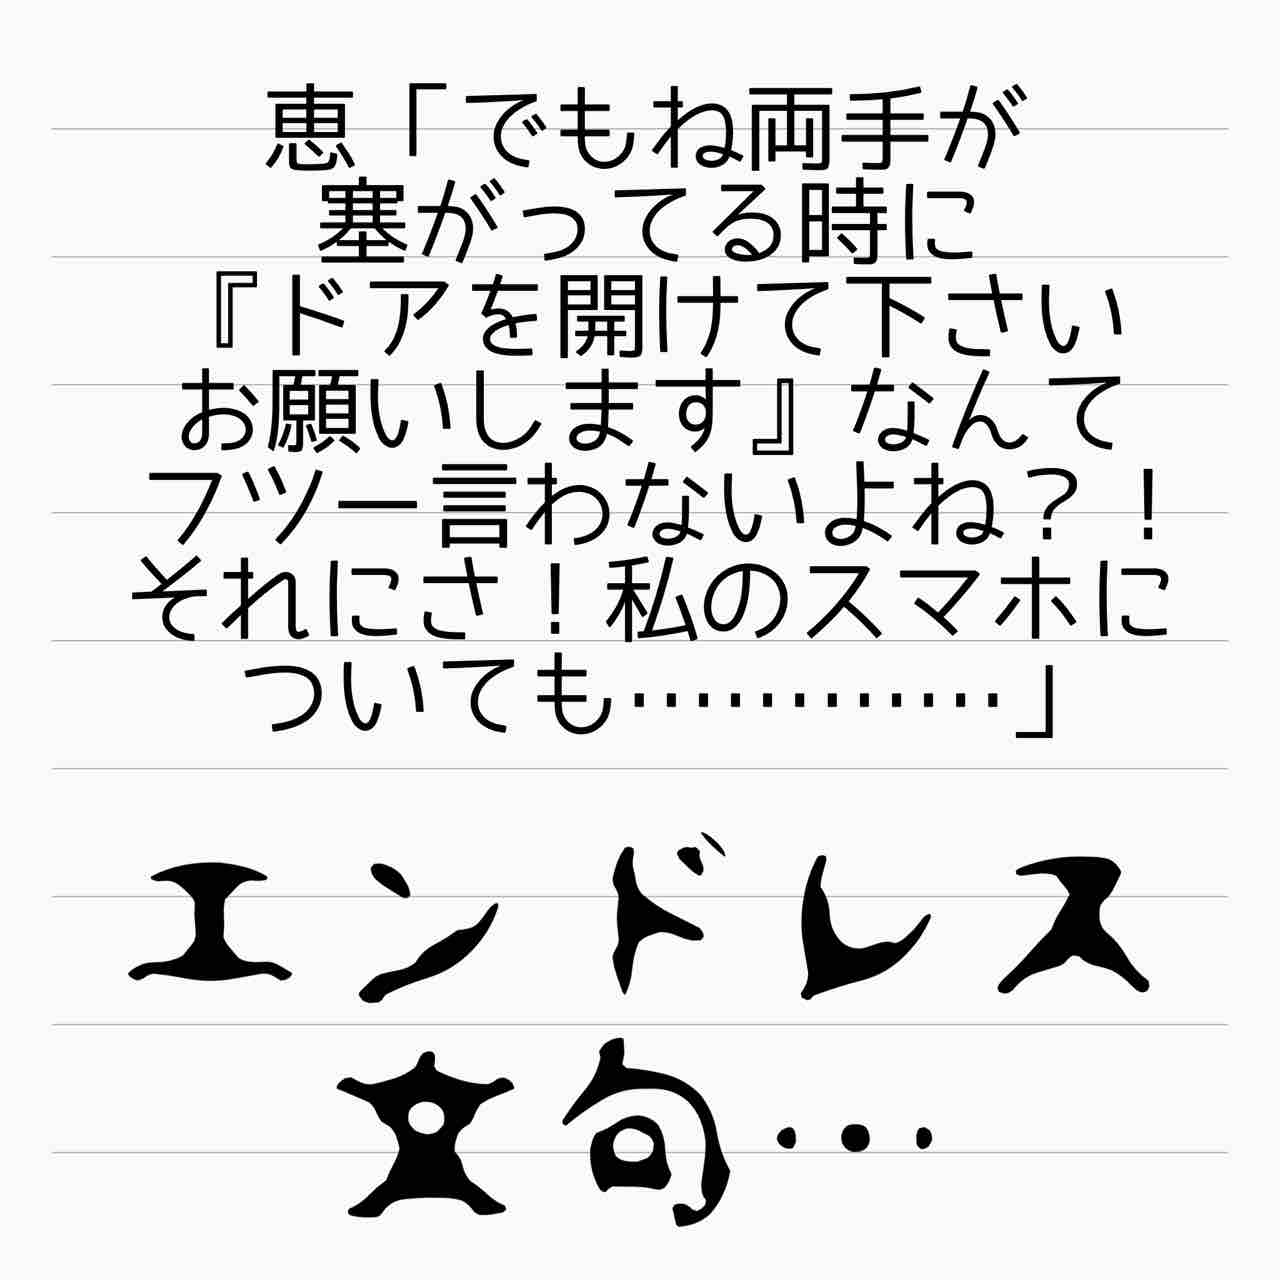 恵「でもね両手が
塞がってる時に
『ドアを開けて下さい
お願いします』なんて
フツー言わないよね？！
それにさ！私のスマホに
ついても…………」
エンドレス
文句…